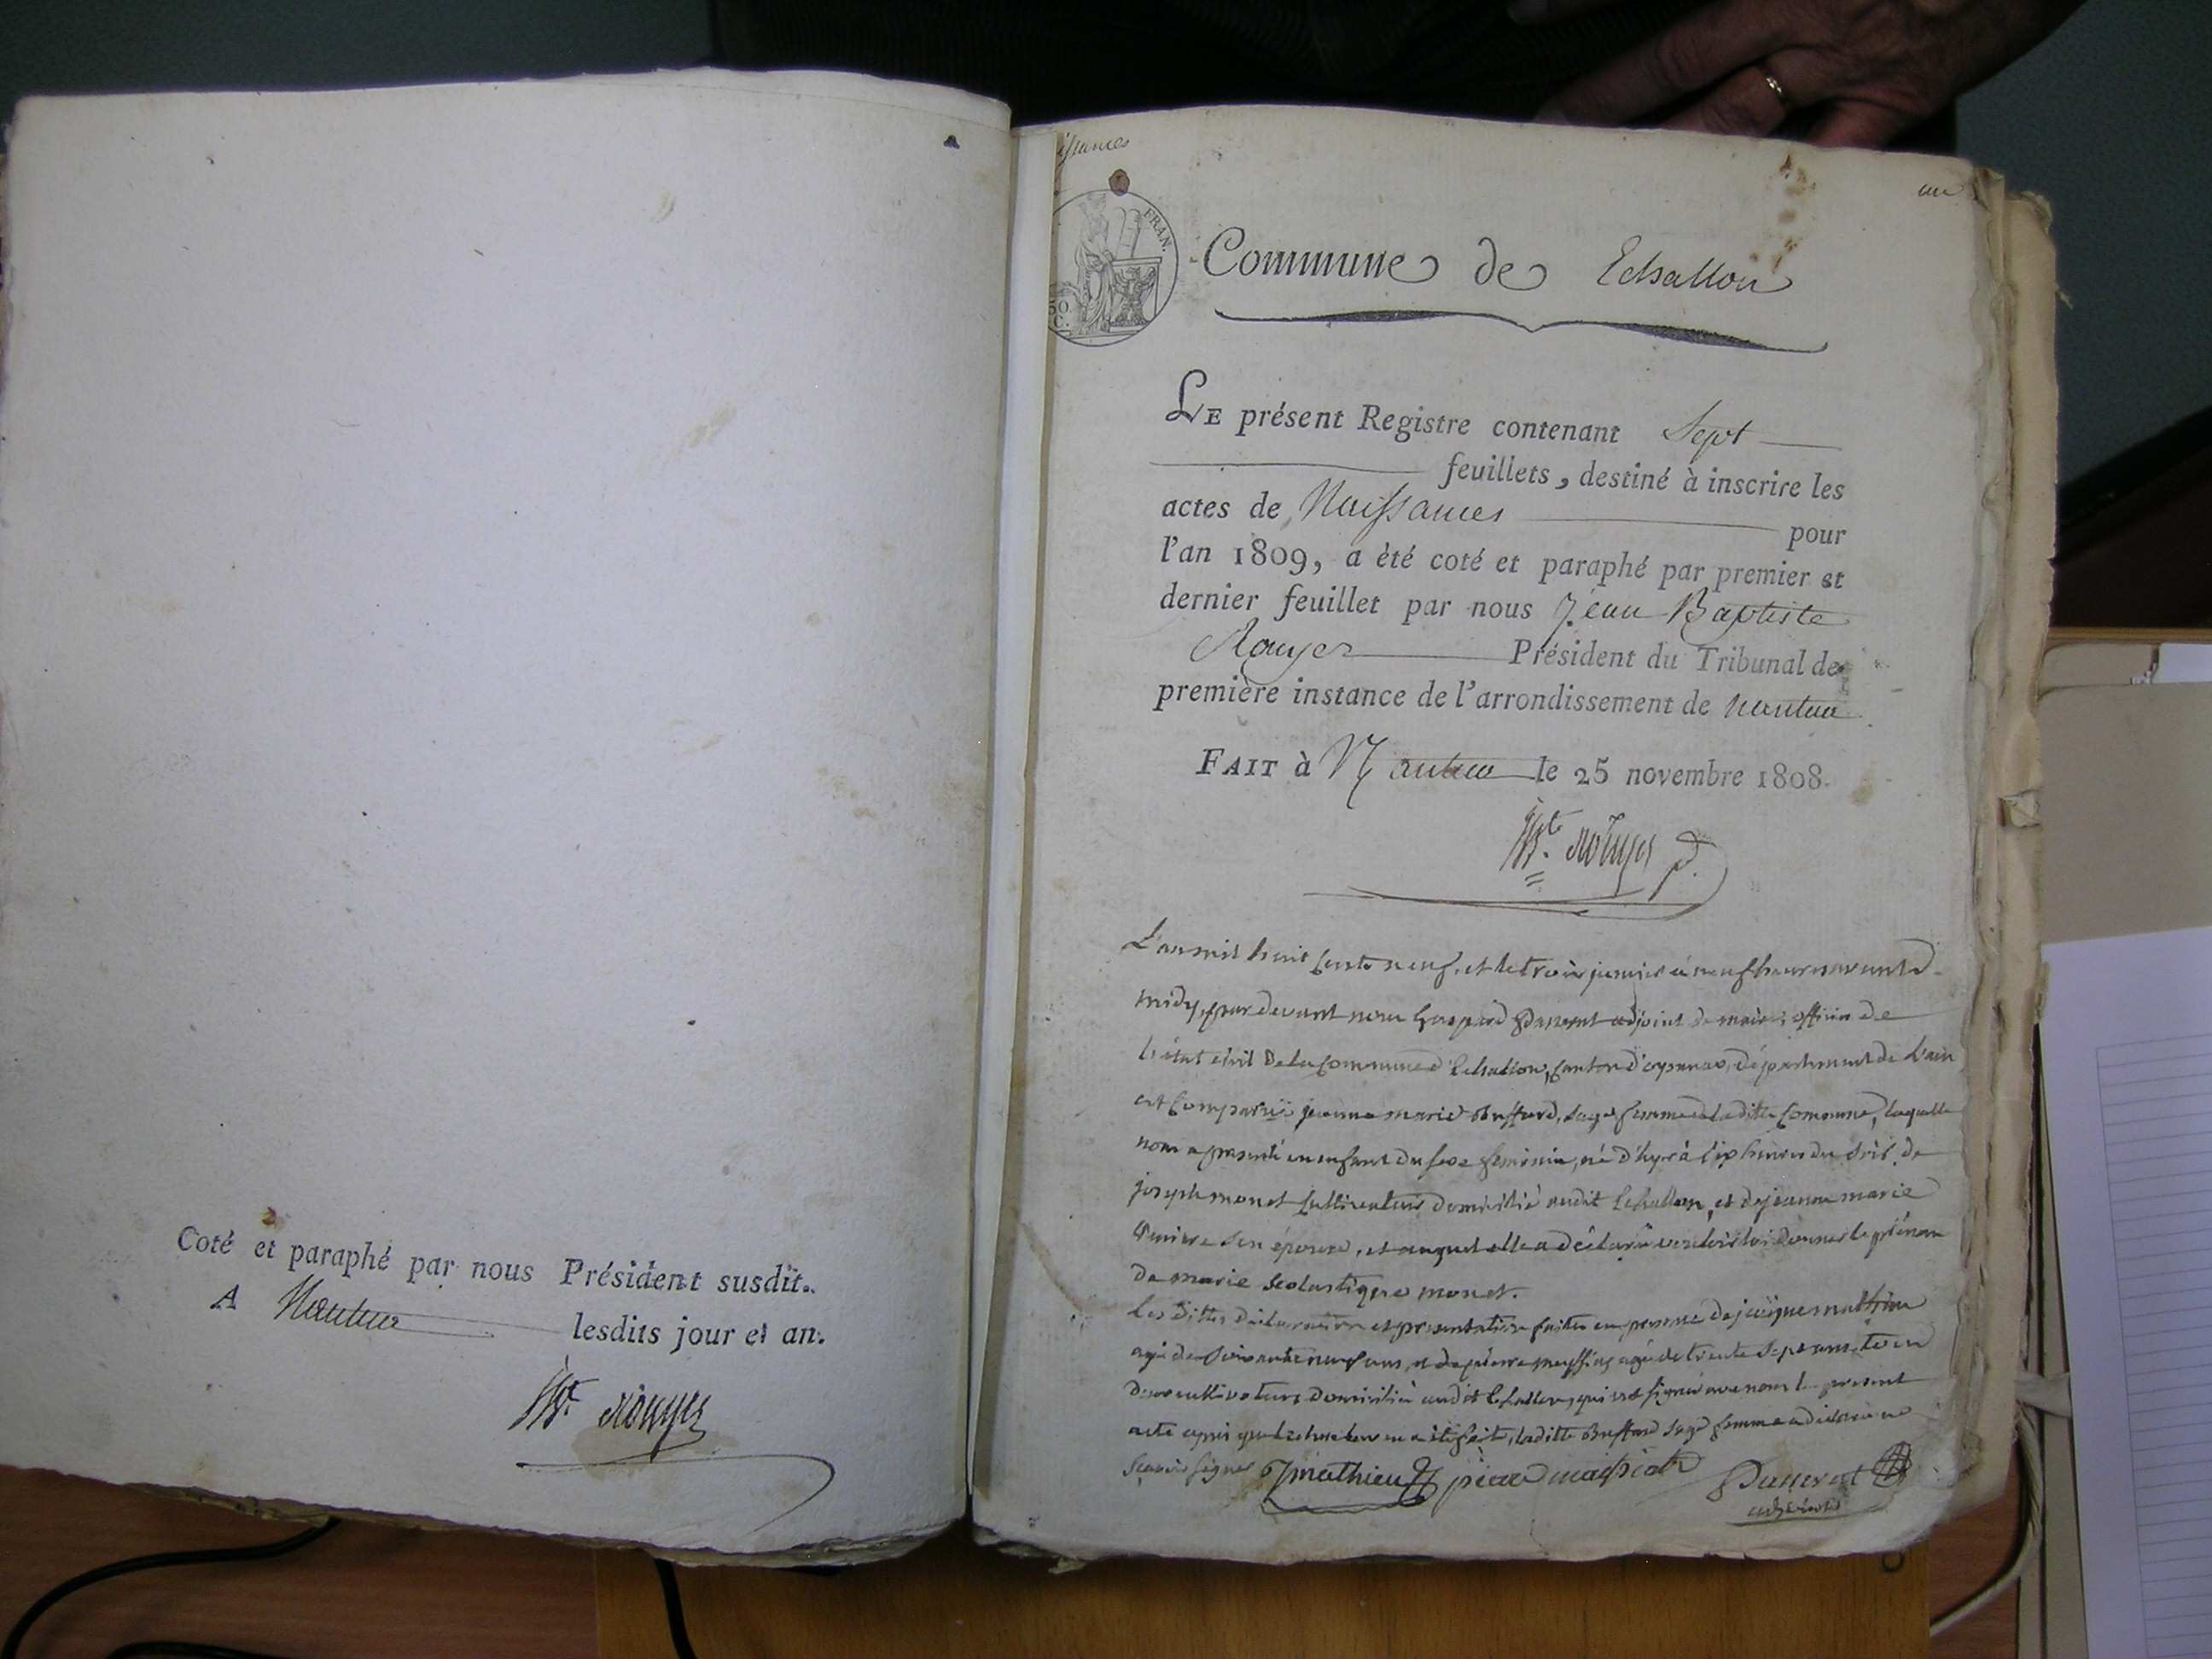 Coté et paraphé par nous Président susdit.
A Nantua lesdits jour et an.
Bte. Rouyer
issances
un
FRAN.
50
C.
Commune de Echallon
LE présent Registre contenant Sept
feuillets, destiné à inscrire les
actes de Naissances pour
l'an 1809, a été coté et paraphé par premier et
dernier feuillet par nous Jean Baptiste
Rouyer Président du Tribunal de
première instance de l'arrondissement de nantua
FAIT à Nantua le 25 novembre 1808.
Bte. Rouyer p.
L'an mil huit cents neuf, et le trois janvier à neuf heures avant
midy, par devant nous Gaspard Panerat adjoint de maire, officier de
l'état civil de la Commune d'Echallon, canton d'oyonnax, département de L'ain
est comparüe jeanne marie Buffard, sage femme de ladite commune, laquelle
nous a présenté un enfant du sexe feminin, né d'hyer à six heures du soir, de
joseph monet cultivateur domicilié audit Echallon, et de jeanne marie
son épouse, et auquel elle a déclaré vouloir lui donner le prénom
de marie scolastique monet.
Les dittes déclaration et présentation faites en présence de jacques mathieu
agé de soixante neuf ans, et de pierre agé de trente sept ans, tous
deux cultivateurs domiciliés audit Echallon, qui ont signés avec nous le present
acte après que lecture leur en a été faite, laditte Buffard sage femme a déclaré ne
scavoir signer J mathieu piere Panerat
adjoint